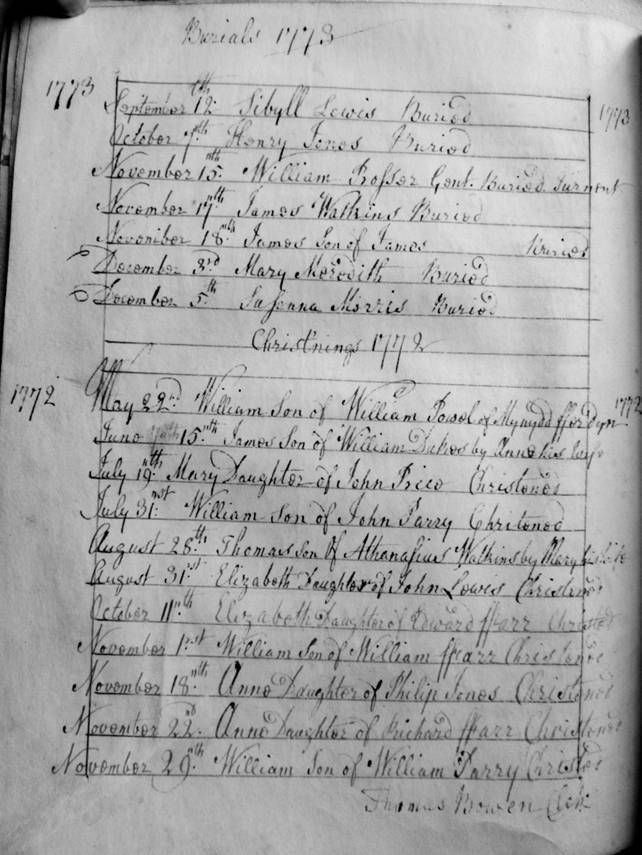 Burials 1773
1773 September 12th Sibyll Lewis Buried 1773
October 7th Henry Jones Buried
November 15nth William Rosser Gent. Buried
November 17nth James Watkins Buried
November 18nth James Son of James Buried
December 3rd Mary Meredith Buried
December 5th Susenna Morris Buried
Christnings 1772
1772 May 22nd William Son of William Powel of Mynydd fferdyn 1772
June 15nth James Son of William Dukes by Anne his wife
July 19nth Mary Daughter of John Price Christened
July 31nst William Son of John Parry Chritened
August 28th Thomas Son of Athanasius Watkins by Mary his wife
August 31st Elizabeth Daughter of John Lewis Christened
October 11nth Elizabeth Daughter of Edward ffarr Christed
November 1nst William Son of William ffarr Christened
November 18nth Anne Daughter of Philip Jones Christened
November 22nd Anne Daughter of Richard ffarr Christened
November 29nth William Son of William Parry Christed
Thomas Bowen Clk